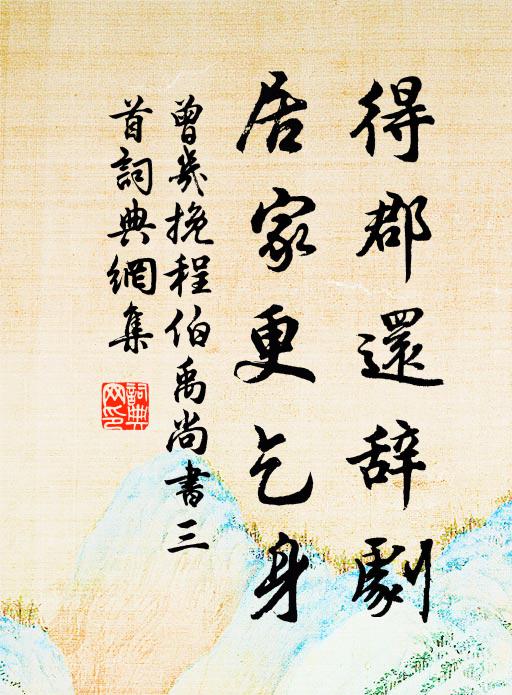 得郡還辞劇
居家更乞身
曾幾挽程伯禹尚書三
首詞典網集
詞典網印